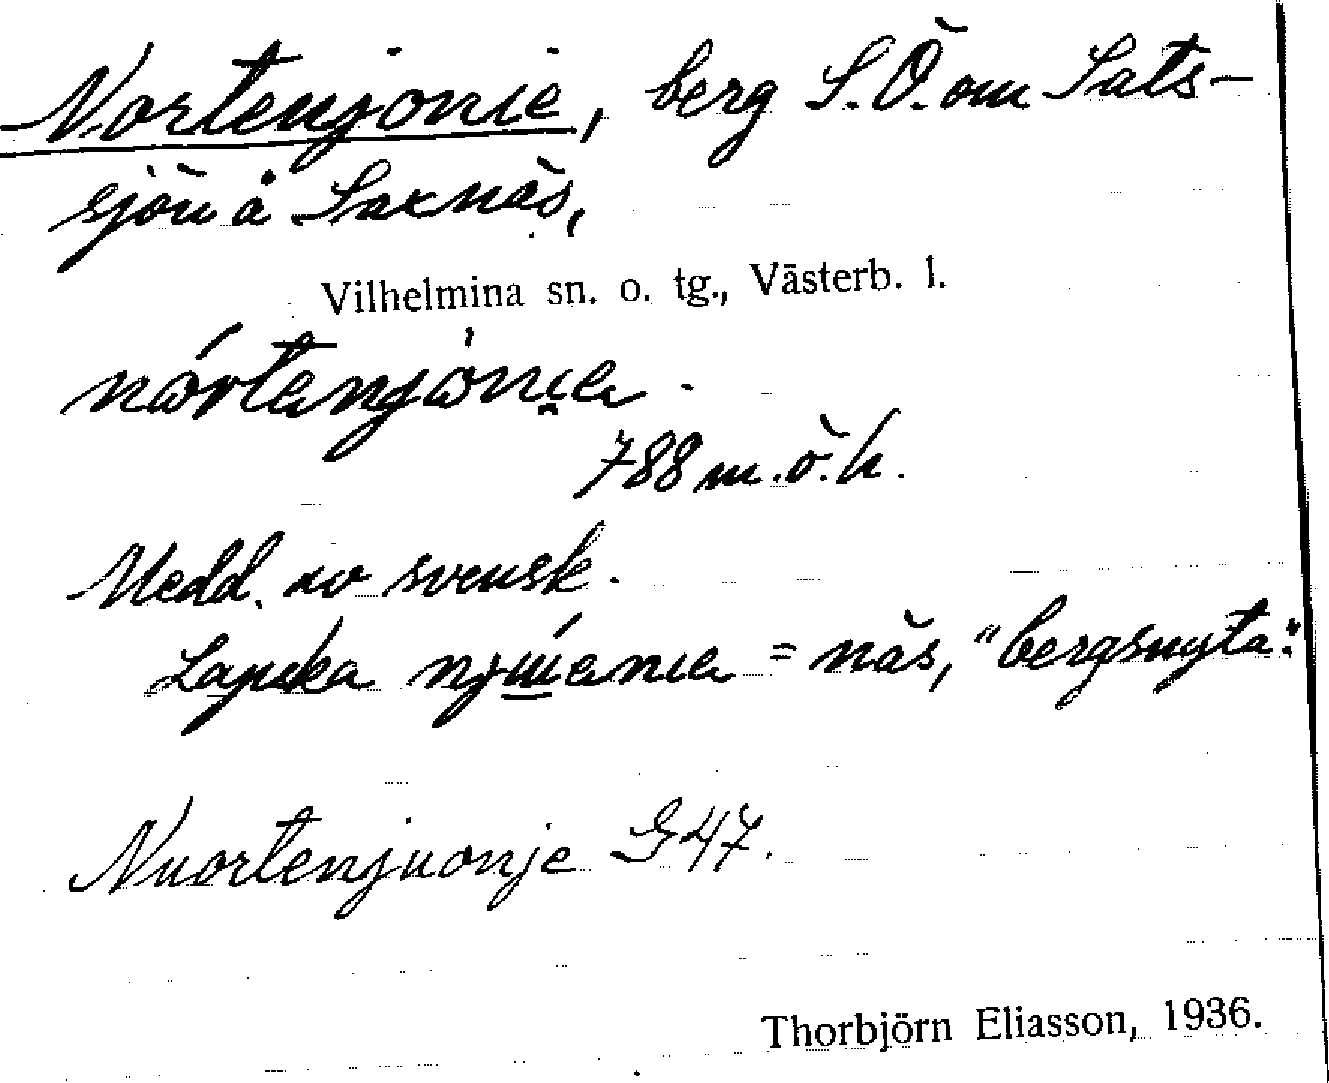 Nortenjonie, berg S.Ö. om Sats-
sjön å Saxnäs,
Vilhelmina sn. o. tg., Västerb. l.
788 m.ö.h.
Medd. av svensk.
Lapska = näs, "bergsnyta".
Nuortenjuonje G47.
Thorbjörn Eliasson, 1936.